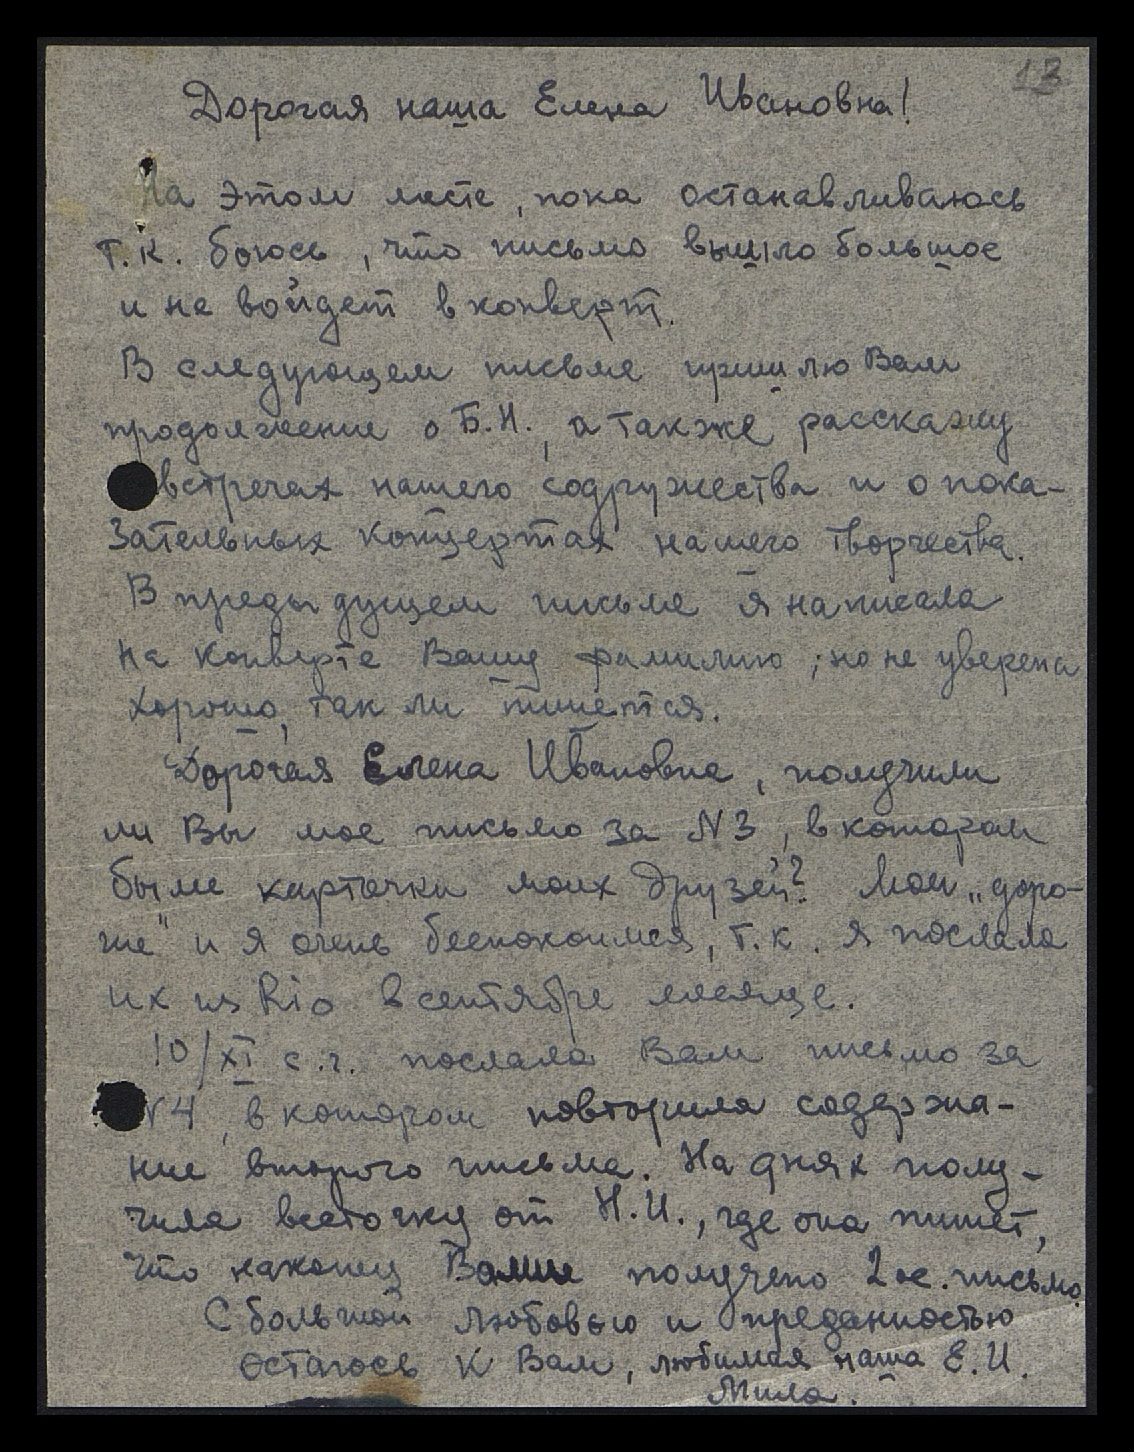 13
Дорогая наша Елена Ивановна!
На этом месте, пока останавливаюсь
т.к. боюсь, что письмо вышло большое
и не войдет в конверт.
В следующем письме пришлю Вам
продолжение о Б.Н., а также расскажу
встречах нашего содружества и о пока-
зательных концертах нашего творчества.
В предыдущем письме я написала
на конверте Вашу фамилию; но не уверена
хорошо, так ли пишется.
Дорогая Елена Ивановна, получили
ли Вы мое письмо за N 3, в котором
были карточки моих друзей? Мои „доро-
гие" и я очень беспокоимся, т.к. я послала
их из Rio в сентябре месяце.
10/XI с.г. послала Вам письмо за
N 4, в котором повторила содержа-
ние второго письма. На днях полу-
чила весточку от Н.И., где она пишет,
что наконец Вами получено 2ое. письмо.
С большой любовью и преданностью
остаюсь к Вам, любимая наша Е.И.
Мила.